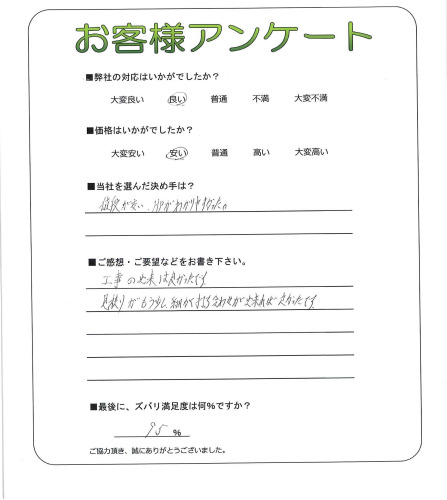 お客様アンケート
■弊社の対応はいかがでしたか？
大変良い 良い 普通 不満 大変不満
■価格はいかがでしたか？
大変安い 安い 普通 高い 大変高い
■当社を選んだ決め手は？
値段が安い、がわかりやすかった。
■ご感想・ご要望などをお書き下さい。
工事の出来は良かったです。
見積りがもう少し細かく打ち合わせが出来れば良かったです。
■最後に、ズバリ満足度は何％ですか？
95 ％
ご協力頂き、誠にありがとうございました。